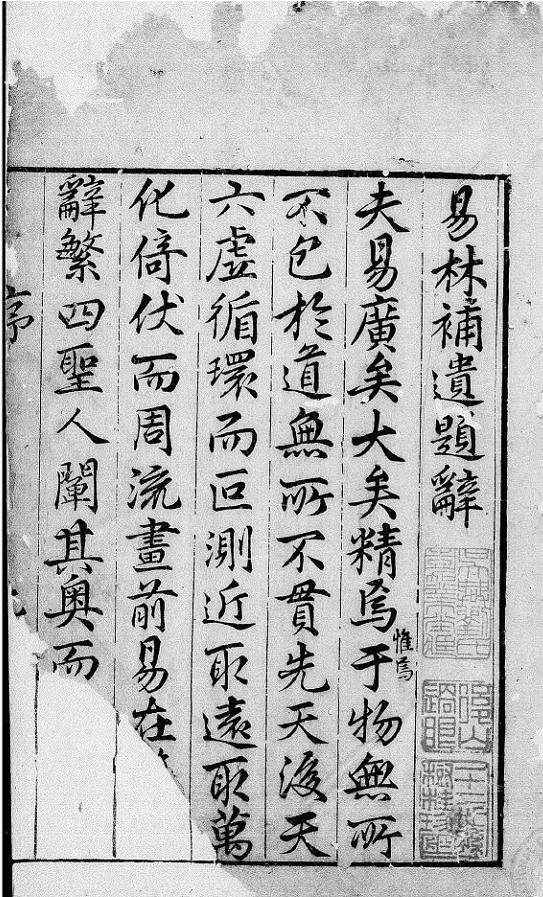 易林補遺題辭
夫易廣矣大矣精焉惟焉于物無所
不包於道無所不貫先天後天
六虛循環而叵測近取遠取萬
化倚伏而周流畫前易在
辭繁四聖人闡其奧而
序